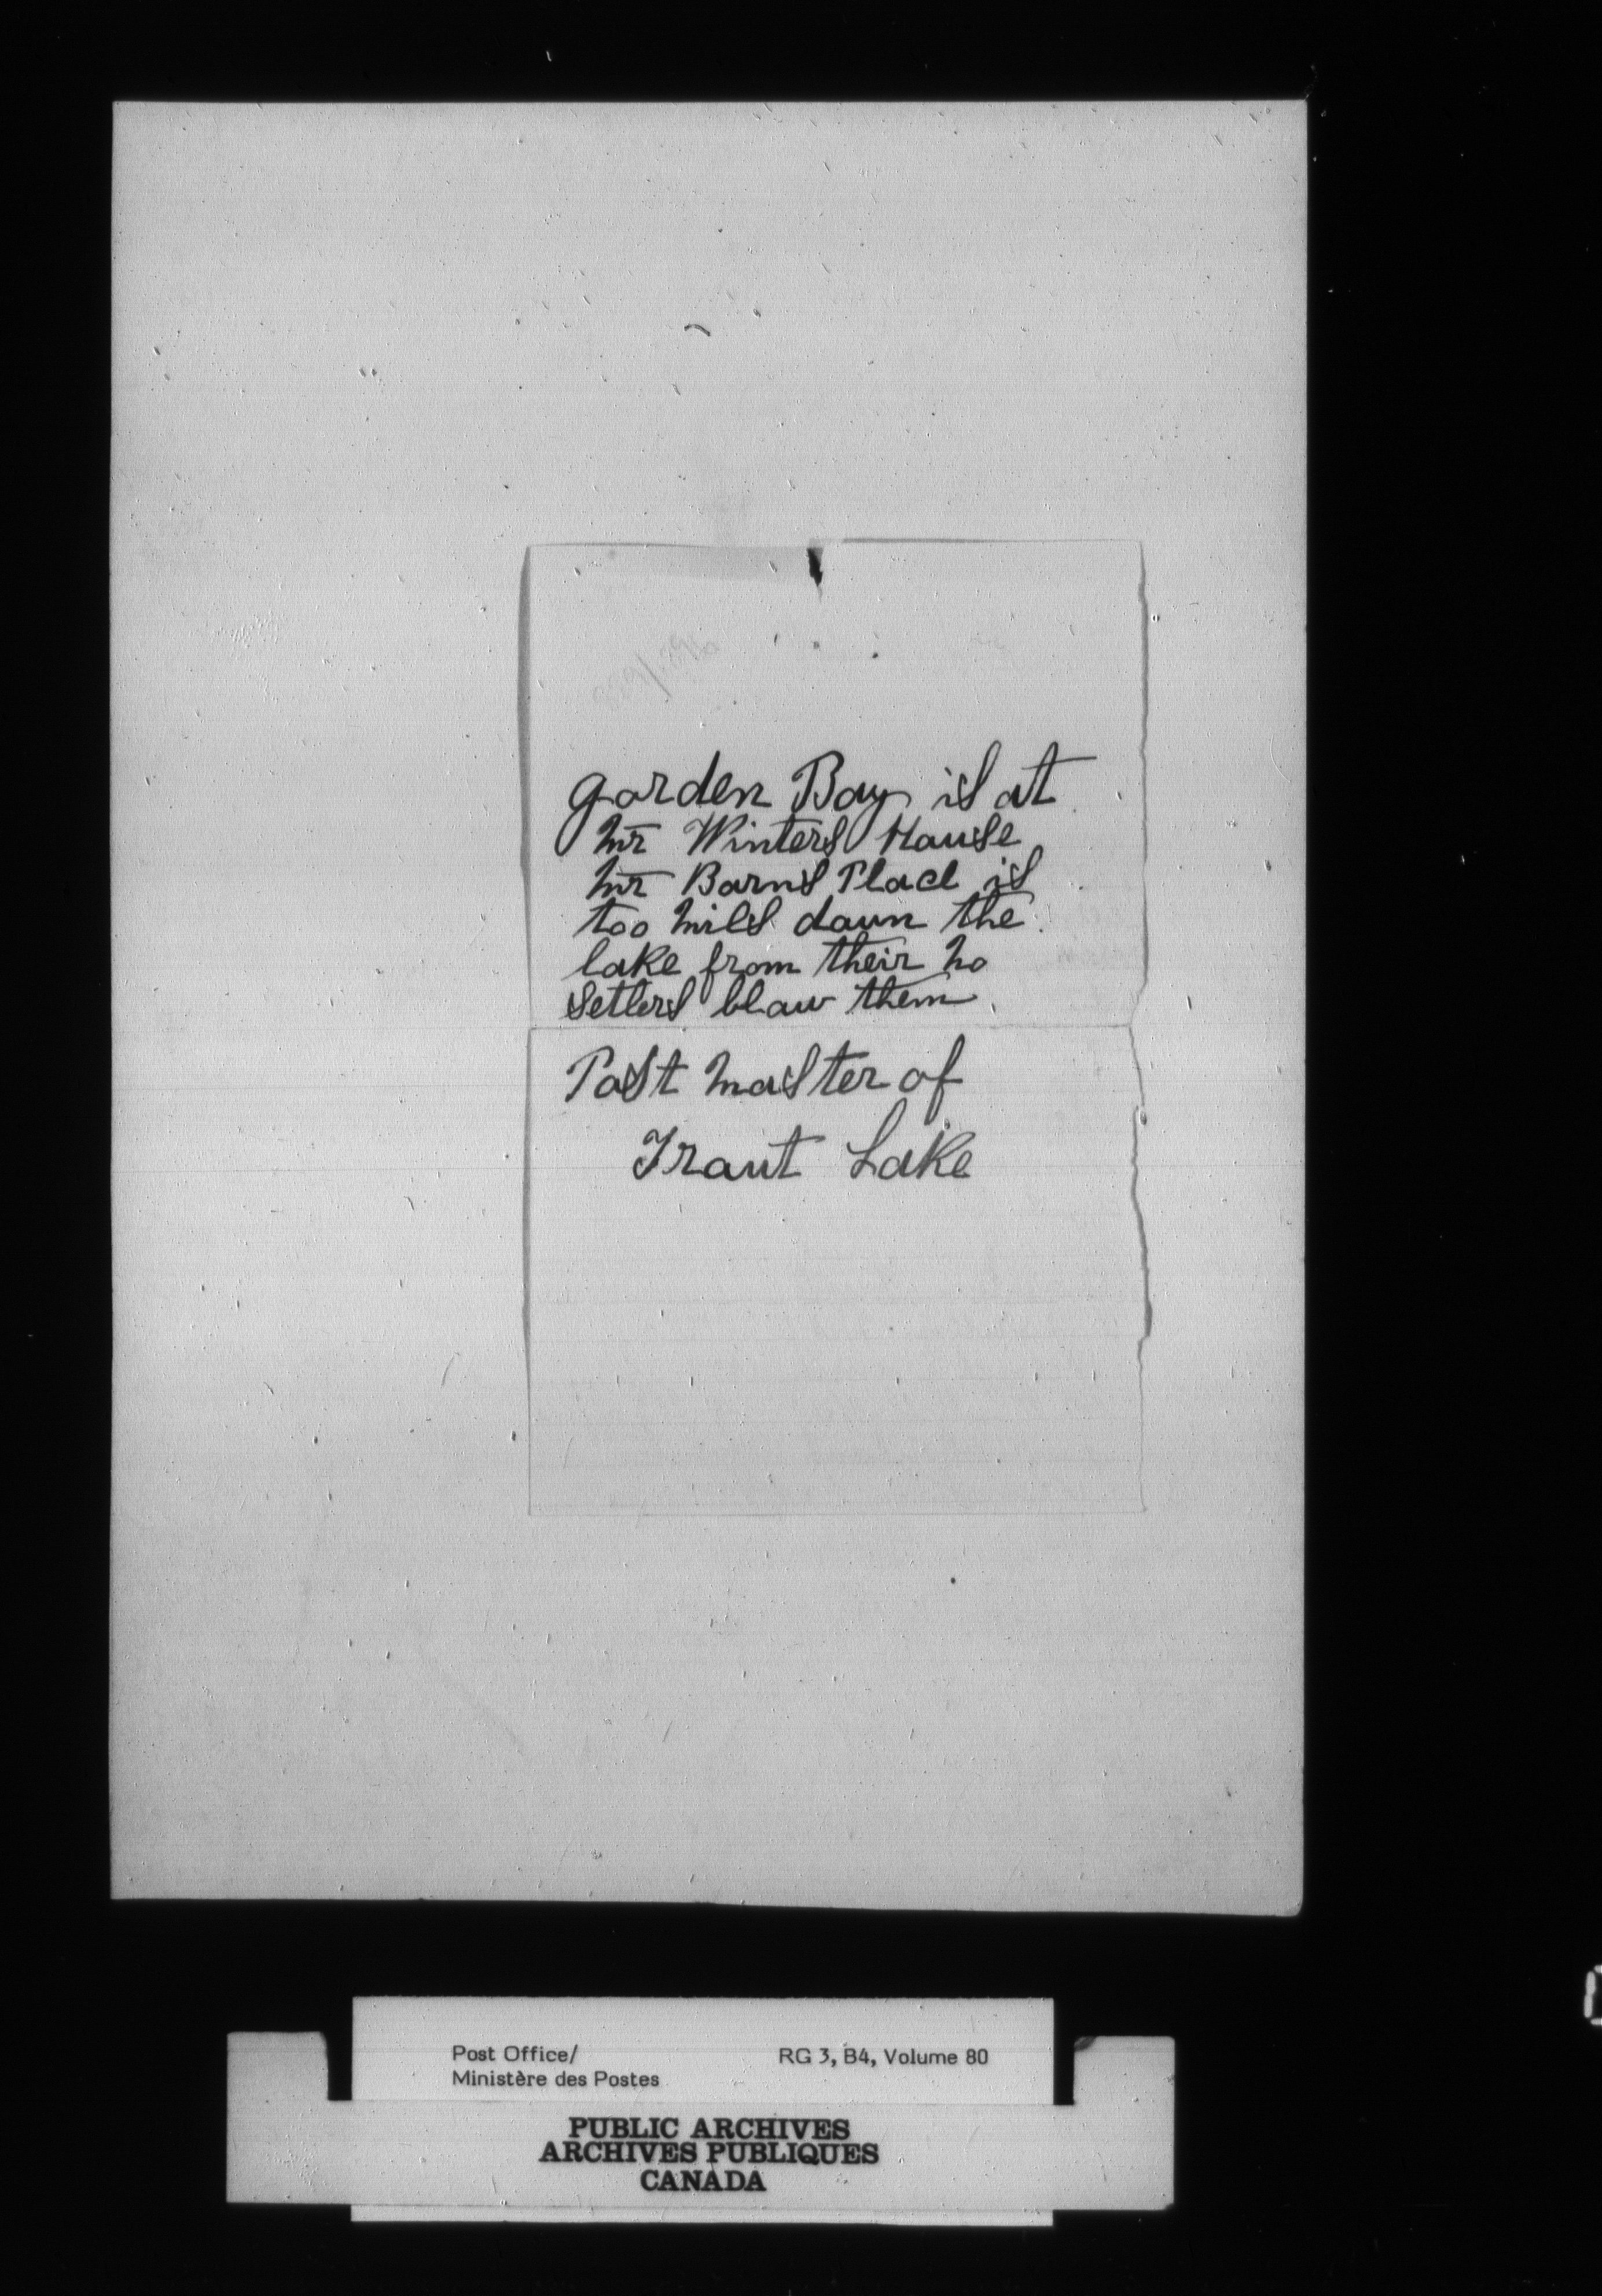 garden Bay is at
Mr Winters House
Mr Barns Place is
too mils down the
lake from their no
Setlers blaw them
Post master of
Trout Lake
Post Office/
Ministère des Postes
RG 3, B4, Volume 80
PUBLIC ARCHIVES
ARCHIVES PUBLIQUES
CANADA